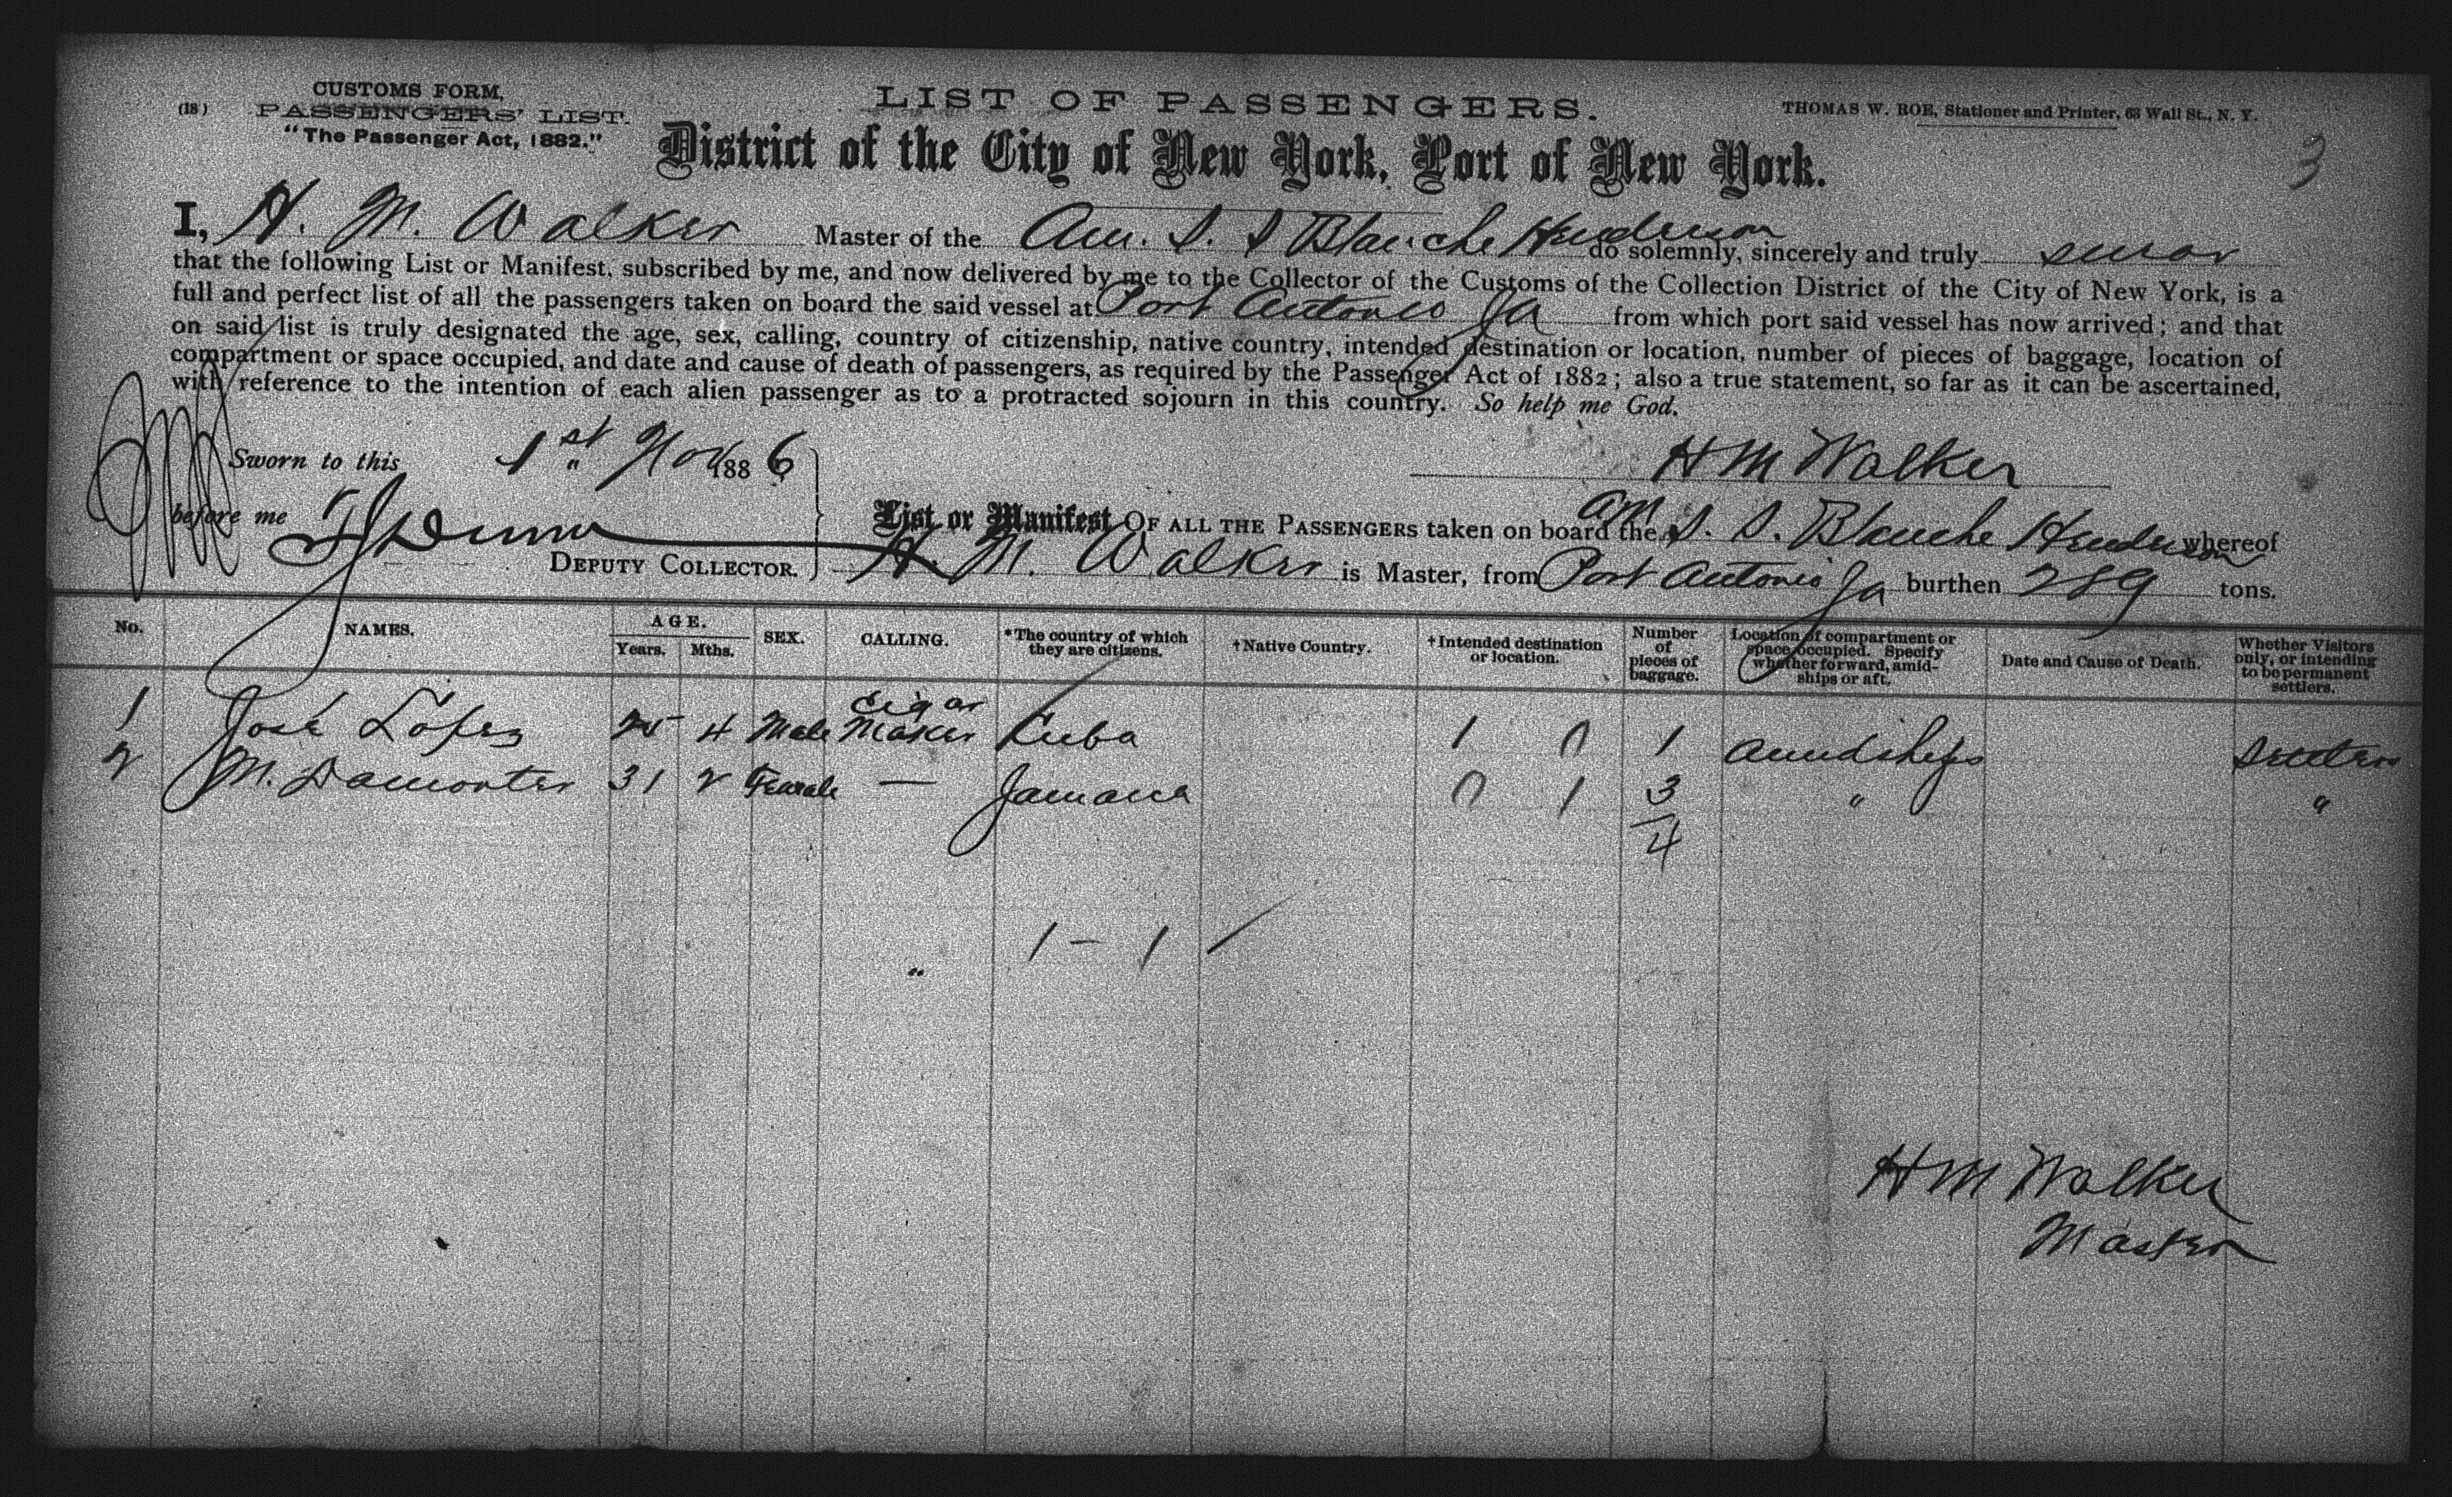 (18)
CUSTOMS FORM,
PASSENGERS' LIST.
"The Passenger Act, 1882."
LIST OF PASSENGERS.
THOMAS W. ROE, Stationer and Printer, 63 Wall St., N. Y.
3
District of the City of New York, Port of New York.
I, H. M. Walker Master of the Am. S. S Blanche Henderson do solemnly, sincerely and truly swear
that the following List or Manifest, subscribed by me, and now delivered by me to the Collector of the Customs of the Collection District of the City of New York, is a
full and perfect list of all the passengers taken on board the said vessel at Port Antonio Ja from which port said vessel has now arrived; and that
on said list is truly designated the age, sex, calling, country of citizenship, native country, intended destination or location, number of pieces of baggage, location of
compartment or space occupied, and date and cause of death of passengers, as required by the Passenger Act of 1882; also a true statement, so far as it can be ascertained,
with reference to the intention of each alien passenger as to a protracted sojourn in this country. So help me God.
Sworn to this 1st Nov 1886
H M Walker
before me
DEPUTY COLLECTOR.
List or Manifest OF ALL THE PASSENGERS taken on board the Am S. S. Blanche Henderson whereof
H. M. Walker is Master, from Port Antonio Ja burthen 289 tons.
No. NAMES. AGE. Years. Mths. SEX. CALLING. *The country of which they are citizens. †Native Country. †Intended destination or location. Number of pieces of baggage. Location of compartment or space occupied. Specify whether forward, amidships or aft. Date and Cause of Death. Whether Visitors only, or intending to be permanent settlers.
1 José Lopez 25 4 Male Cigar Maker Cuba 1 0 1 Amidships
2 M. 31 2 Female — Jamaica 0 1 3 " "
4
1 - 1
"
H M Walker
Master